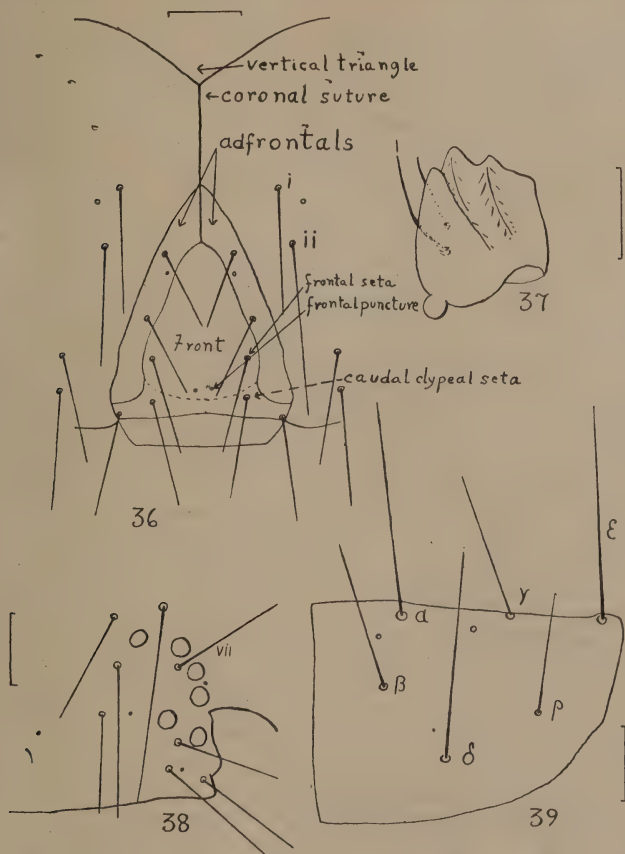 vertical triangle
coronal suture
adfrontals
i
ii
frontal seta
frontal puncture
Front
caudal clypeal seta
36
37
vii
38
α
β
γ
δ
ε
ρ
39